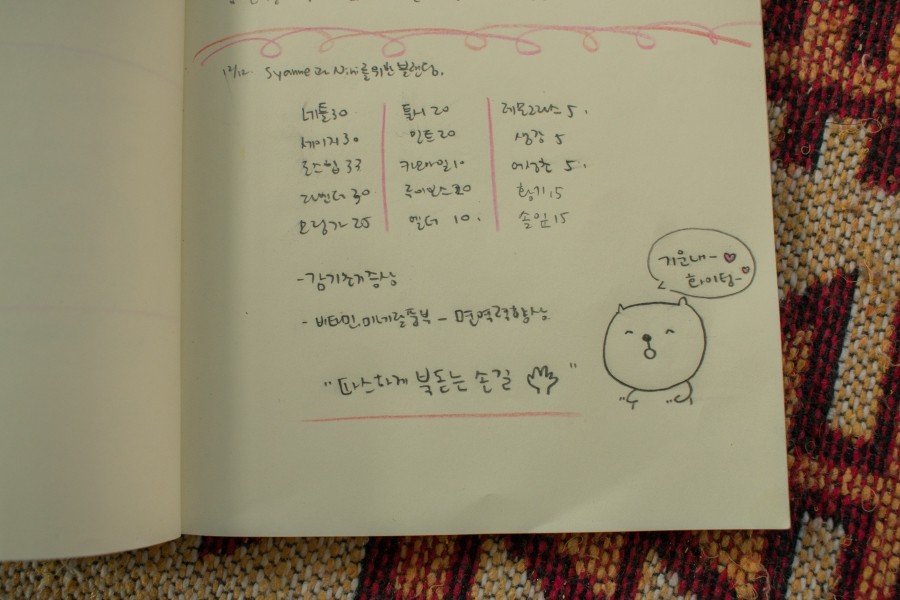 12/12. Syamme과 Nini를 위한 블렌딩.
네틀 30
세이지 30
로즈힙 33
라벤더 30
모링가 25
툴시 20
민트 20
카모마일 10
루이보스 20
엘더 10.
레몬그라스 5.
생강 5
어성초 5.
황기 15
솔잎 15
-감기초기증상
- 비타민, 미네랄 풍부 - 면역력향상
"따스하게 북돋는 손길"
기운내~
화이팅~